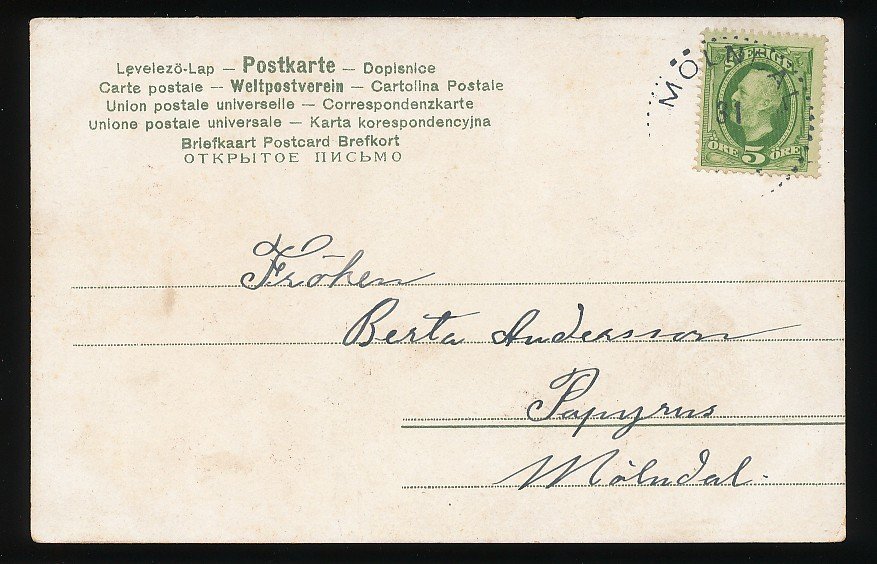 Levelezö-Lap — Postkarte — Dopisnice
Carte postale — Weltpostverein — Cartolina Postale
Union postale universelle — Correspondenzkarte
Unione postale universale — Karta korespondencyjna
Briefkaart Postcard Brefkort
ОТКРЫТОЕ ПИСЬМО
MÖLNDAL
31
SVERIGE
ÖRE 5 ÖRE
Fröken
Berta Andersson
Papyrus
Mölndal.